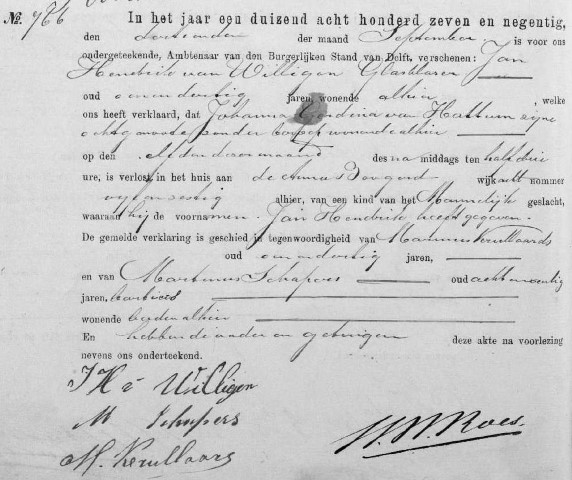 No. 766 In het jaar een duizend acht honderd zeven en negentig,
den der maand September is voor ons
ondergeteekende, Ambtenaar van den Burgerlijken Stand van Delft, verschenen: Jan
Hendrik van Willigen Glasblazer
oud een en dertig jaren, wonende alhier, welke
ons heeft verklaard, dat Johanna van Hattum zijne
echtgenoote zonder beroep wonende alhier
op den elfden dezer maand des na middags ten half drie
ure, is verlost in het huis aan de wijk acht nommer
vijf en zestig alhier, van een kind van het Mannelijk geslacht,
waaraan hij de voornamen Jan Hendrik heeft gegeven.
De gemelde verklaring is geschied in tegenwoordigheid van
oud een en dertig jaren,
en van Martinus Schapers oud acht en veertig
jaren,
wonende beiden alhier
En hebben de vader en getuigen deze akte na voorlezing
nevens ons onderteekend.
J H v Willigen
M Schapers
M. Kerullaars